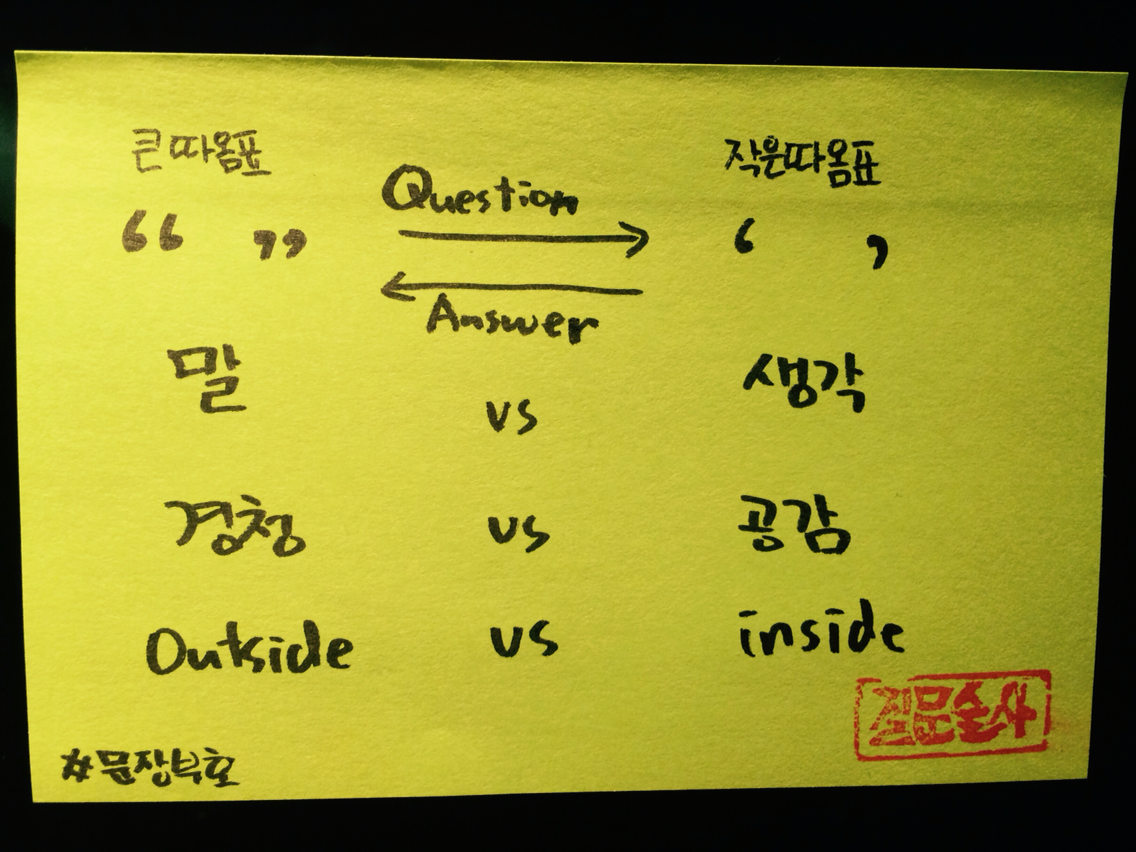 큰따옴표 작은따옴표
Question
“ ” ‘ ’
Answer
말 vs 생각
경청 vs 공감
Outside vs inside
질문술사
#문장부호